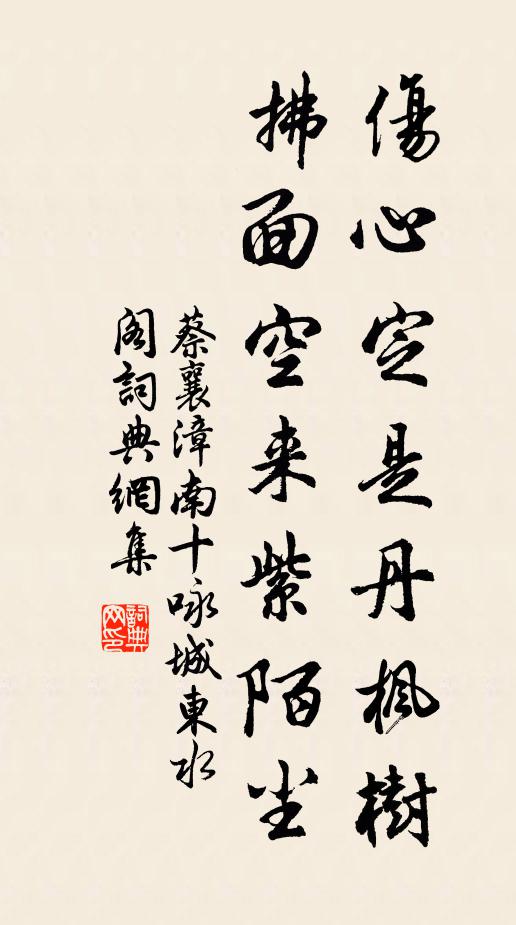 傷心定是丹枫樹
拂面空来紫陌尘
蔡襄漳南十咏城東水
閣詞典網集
詞典
网印